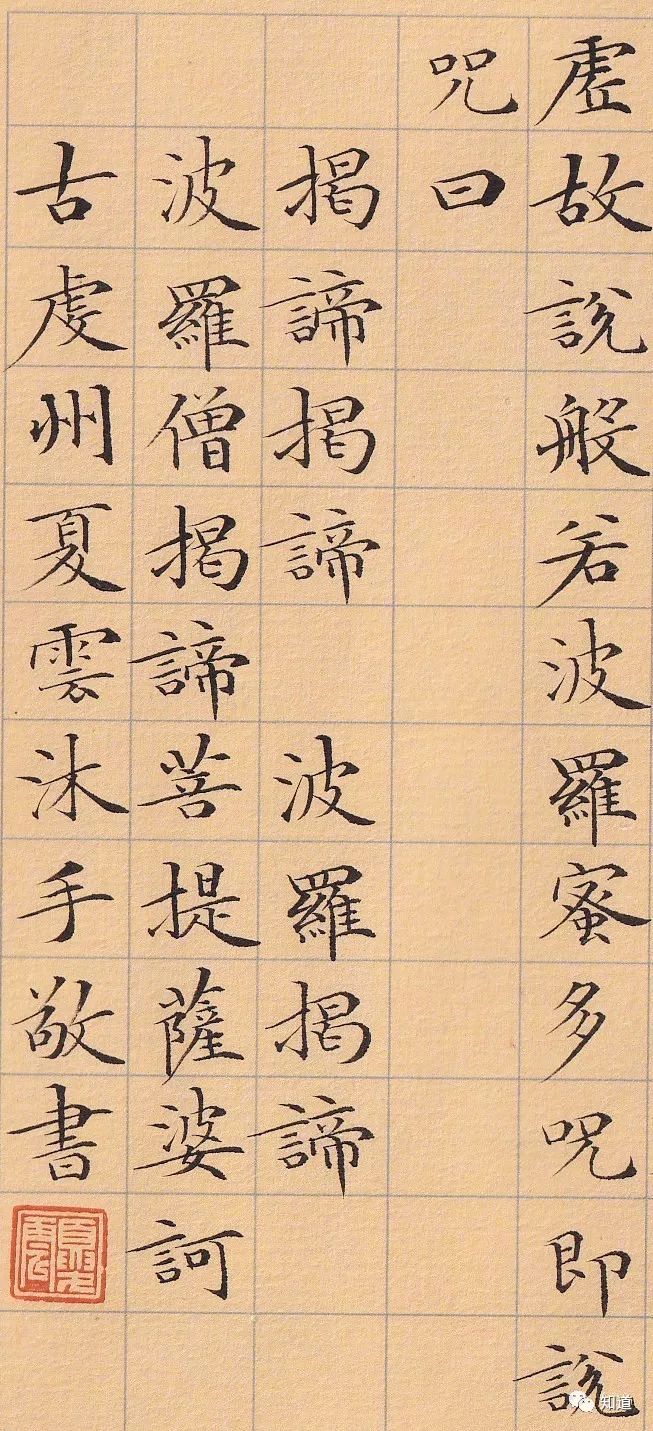 虛故說般若波羅蜜多咒即說
咒曰
揭諦揭諦 波羅揭諦
波羅僧揭諦菩提薩婆訶
古虔州夏雲沐手敬書
知道